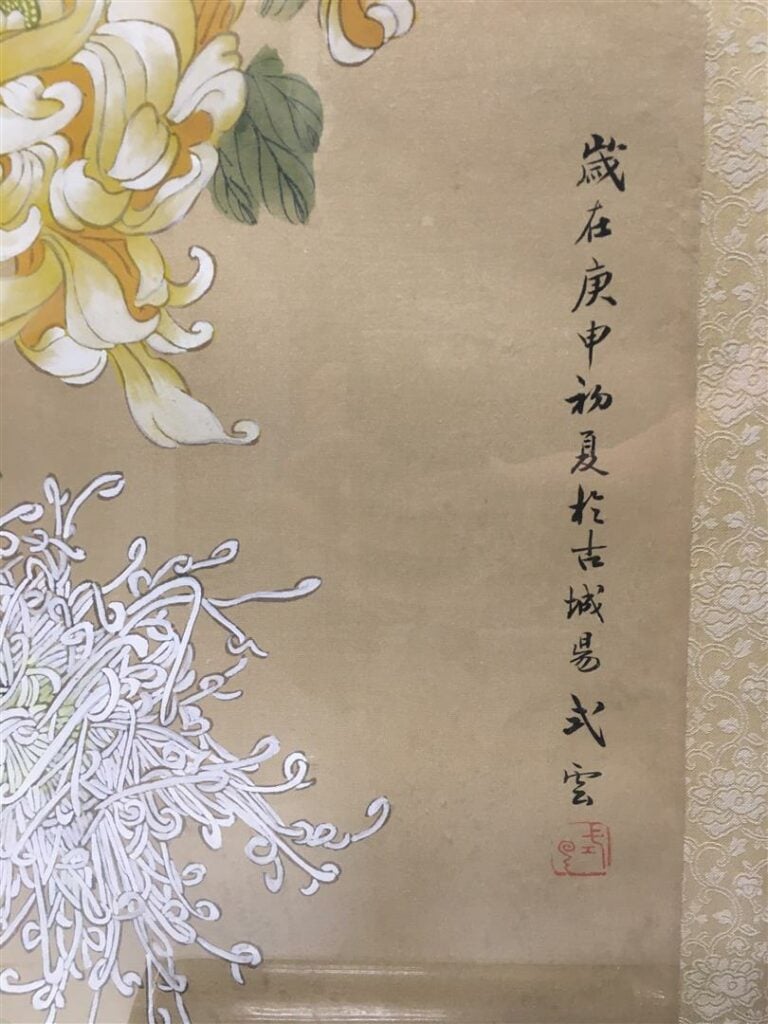 歲在庚申初夏於古城易式雲